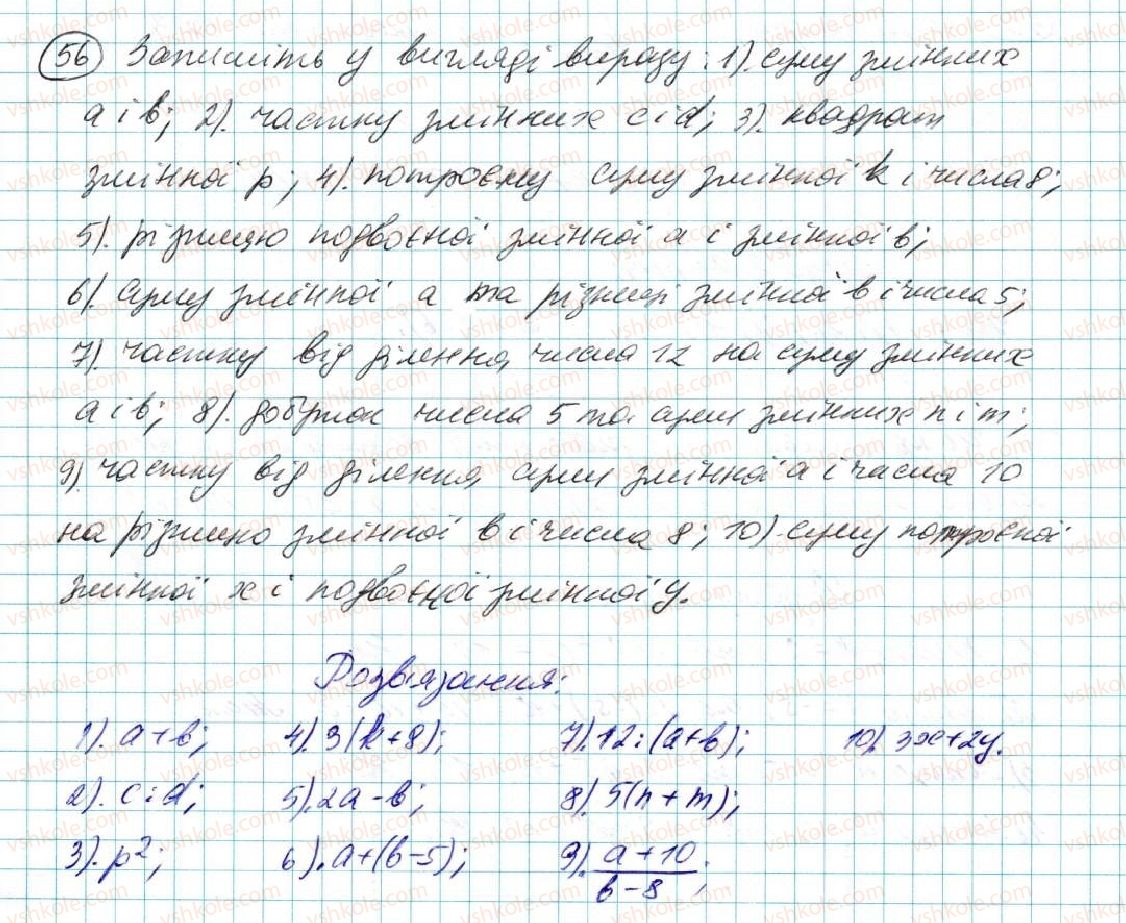 56 Запишіть у вигляді виразу: 1). суму змінних
a і b; 2). частку змінних c і d; 3). квадрат
змінної p; 4). потроєну суму змінної k і числа 8;
5). різницю подвоєної змінної a і змінної b;
6). суму змінної a та різниці змінної b і числа 5;
7). частку від ділення числа 12 на суму змінних
a і b; 8). добуток числа 5 та суми змінних n і m;
9). частку від ділення суми змінної a і числа 10
на різницю змінної b і числа 8; 10) суму потроєної
змінної x і подвоєної змінної y.
Розв'язання:
1). a+b; 4). 3(k+8); 7). 12:(a+b); 10). 3x+2y.
2). c:d; 5). 2a-b; 8). 5(n+m);
3). p²; 6). a+(b-5); 9). (a+10)/(b-8);
vshkole.com